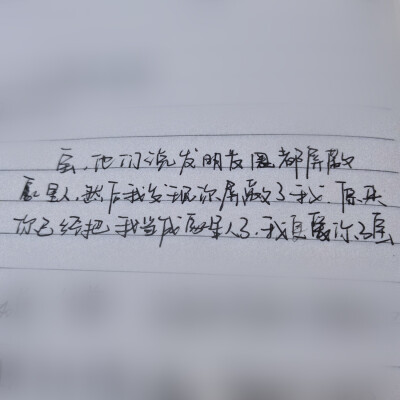 宝，他们说发朋友圈都屏蔽
家里人，然后我发现你屏蔽了我，原来
你已经把我当成家里人了，我真爱你了宝